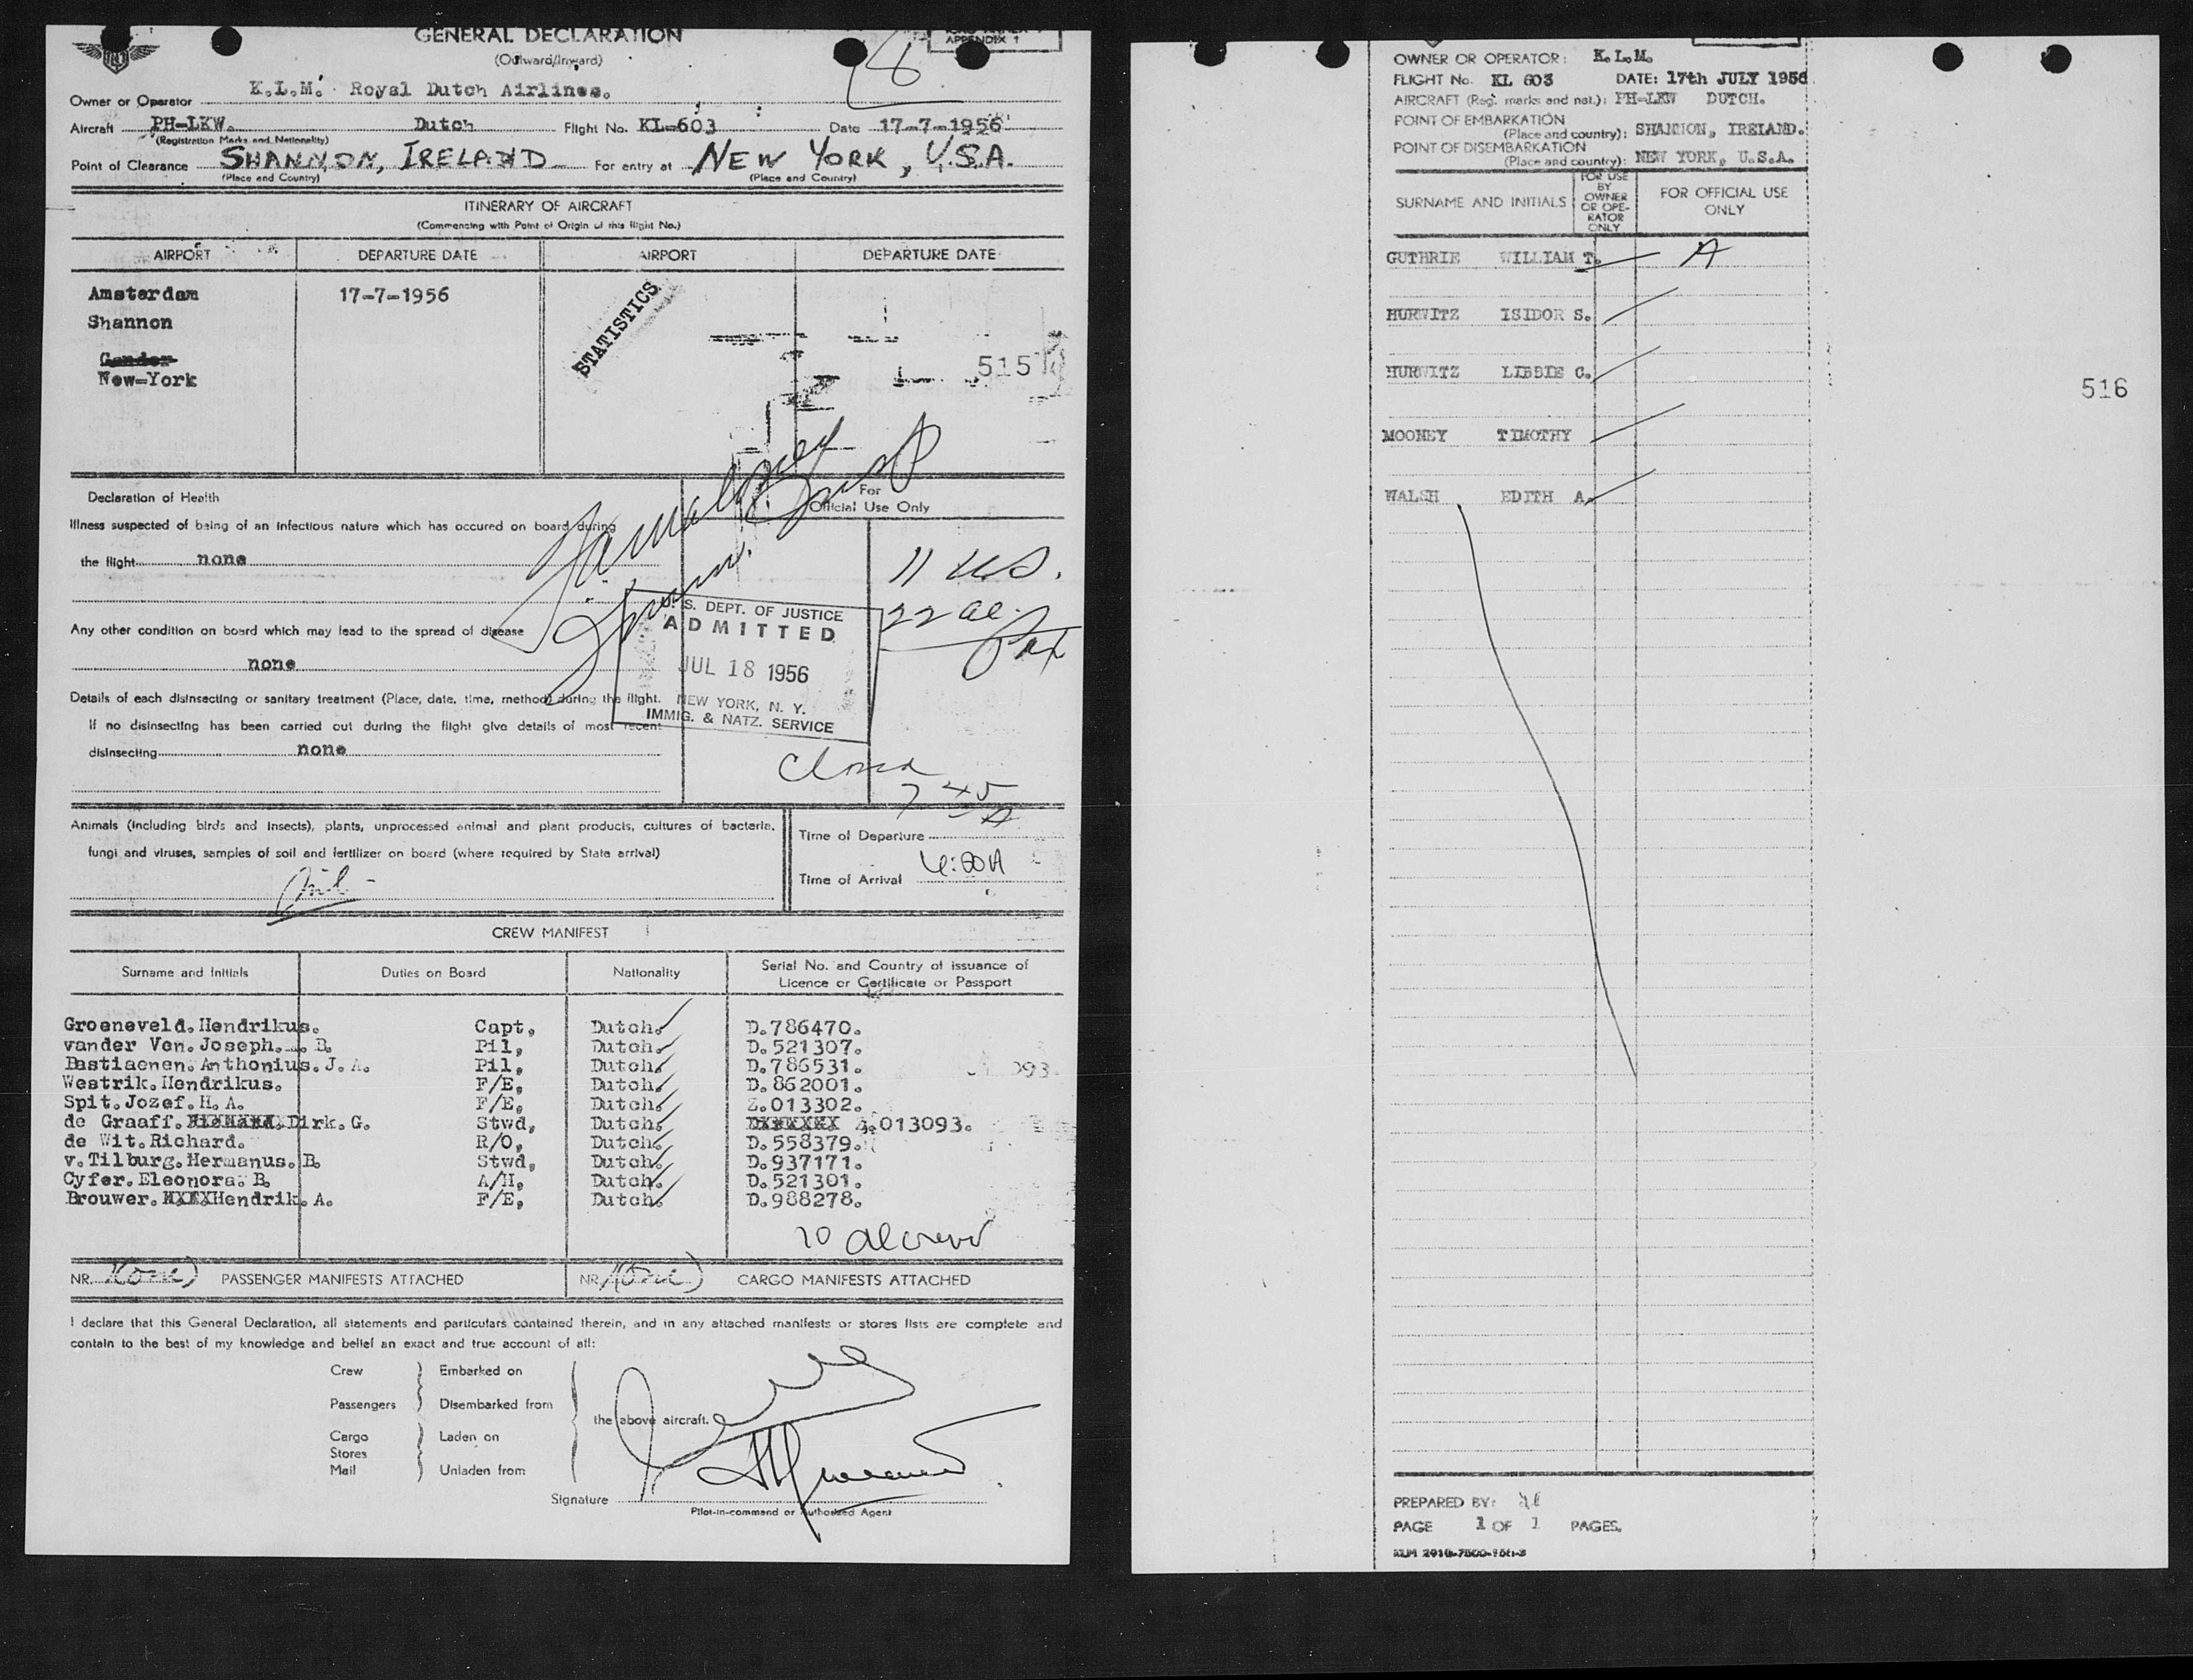 GENERAL DECLARATION
(Outward/Inward)
APPENDIX 1
8
Owner or Operator K.L.M. Royal Dutch Airlines.
Aircraft PH-LKW. Dutch Flight No. KL-603 Date 17-7-1956
(Registration Marks and Nationality)
Point of Clearance SHANNON, IRELAND For entry at NEW YORK, U.S.A.
(Place and Country) (Place and Country)
ITINERARY OF AIRCRAFT
(Commencing with Point of Origin of this flight No.)
AIRPORT DEPARTURE DATE AIRPORT DEPARTURE DATE
Amsterdam 17-7-1956
Shannon
STATISTICS
Gander
New-York
515
Declaration of Health
For
Official Use Only
Illness suspected of being of an infectious nature which has occured on board during
the flight none
11 US.
22 al.
Pax
Any other condition on board which may lead to the spread of disease
none
U. S. DEPT. OF JUSTICE
ADMITTED
JUL 18 1956
NEW YORK, N. Y.
IMMIG. & NATZ. SERVICE
Details of each disinsecting or sanitary treatment (Place, date, time, method) during the flight.
If no disinsecting has been carried out during the flight give details of most recent
disinsecting none
Closed
7 45 A
Animals (including birds and insects), plants, unprocessed animal and plant products, cultures of bacteria,
fungi and viruses, samples of soil and fertilizer on board (where required by State arrival)
nil -
Time of Departure
Time of Arrival 4:00A
CREW MANIFEST
Surname and Initials Duties on Board Nationality Serial No. and Country of issuance of
Licence or Certificate or Passport
Groeneveld. Hendrikus. Capt, Dutch. D.786470.
vander Ven. Joseph. B. Pil, Dutch. D.521307.
Bastiaenen. Anthonius. J. A. Pil, Dutch. D.786531.
Westrik. Hendrikus. F/E, Dutch. D.862001.
Spit. Jozef. H. A. F/E, Dutch. Z.013302.
de Graaff. Dirk. G. Stwd, Dutch. 013093.
de Wit. Richard. R/O, Dutch. D.558379.
v. Tilburg. Hermanus. B. Stwd, Dutch. D.937171.
Cyfer. Eleonora. B. A/H, Dutch. D.521301.
Brouwer. Hendrik. A. F/E, Dutch. D.988278.
10 al crew
NR. 1(one) PASSENGER MANIFESTS ATTACHED NR. 1(one) CARGO MANIFESTS ATTACHED
I declare that this General Declaration, all statements and particulars contained therein, and in any attached manifests or stores lists are complete and
contain to the best of my knowledge and belief an exact and true account of all:
Crew Embarked on
Passengers Disembarked from
the above aircraft.
Cargo Laden on
Stores
Mail Unladen from
Signature
Pilot-in-command or Authorized Agent
OWNER OR OPERATOR: K.L.M.
FLIGHT No. KL 603 DATE: 17th JULY 1956
AIRCRAFT (Reg. marks and nat.): PH-LKW DUTCH.
POINT OF EMBARKATION
(Place and country): SHANNON, IRELAND.
POINT OF DISEMBARKATION
(Place and country): NEW YORK, U.S.A.
SURNAME AND INITIALS
FOR USE
BY
OWNER
OR OPE-
RATOR
ONLY
FOR OFFICIAL USE
ONLY
GUTHRIE WILLIAM T. A
HURWITZ ISIDOR S.
HURWITZ LIBBIE C.
516
MOONEY TIMOTHY
WALSH EDITH A.
PREPARED BY:
PAGE 1 OF 1 PAGES.